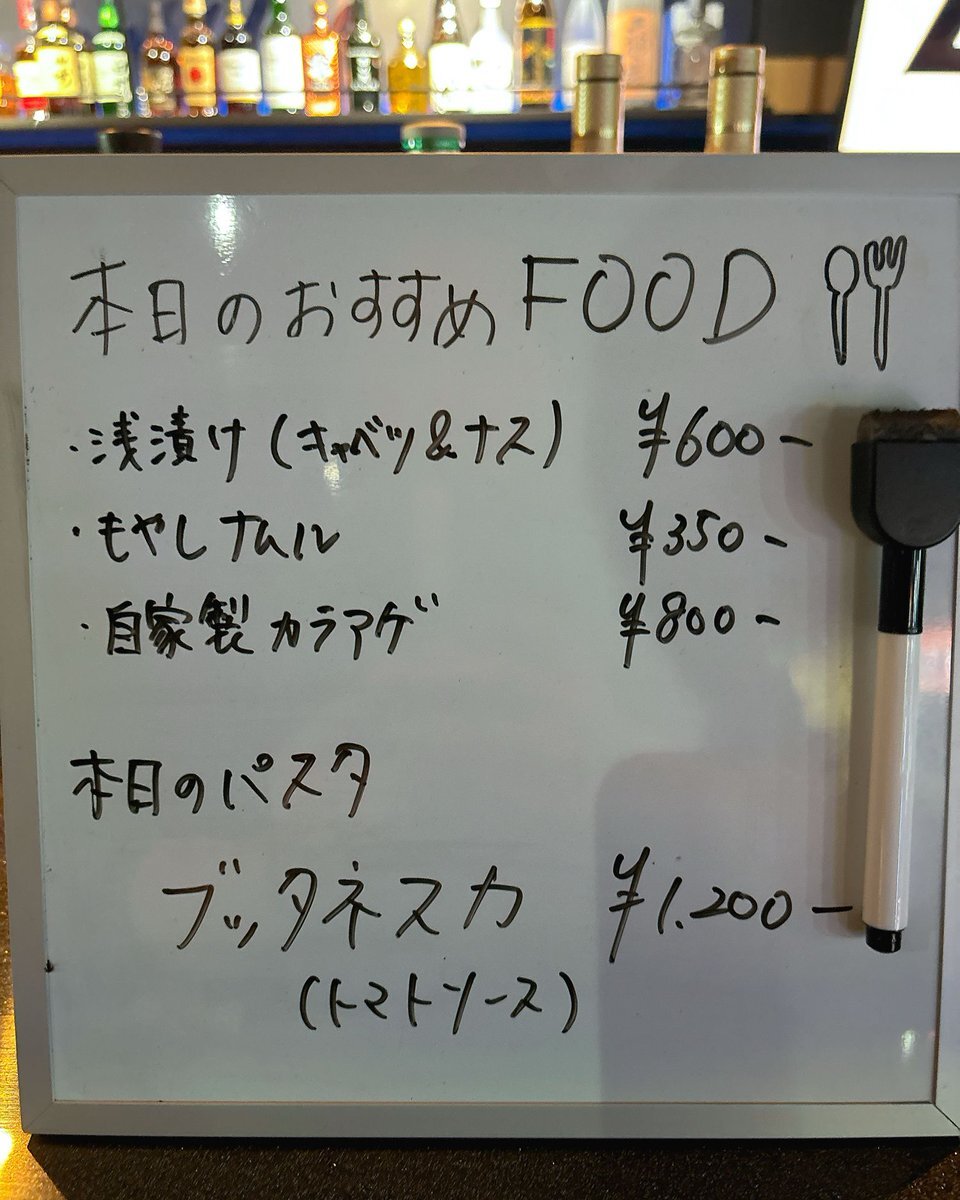 本日のおすすめFOOD
・浅漬け(キャベツ&ナス) ¥600-
・もやしナムル ¥350-
・自家製カラアゲ ¥800-
本日のパスタ
ブッタネスカ ¥1.200-
(トマトソース)